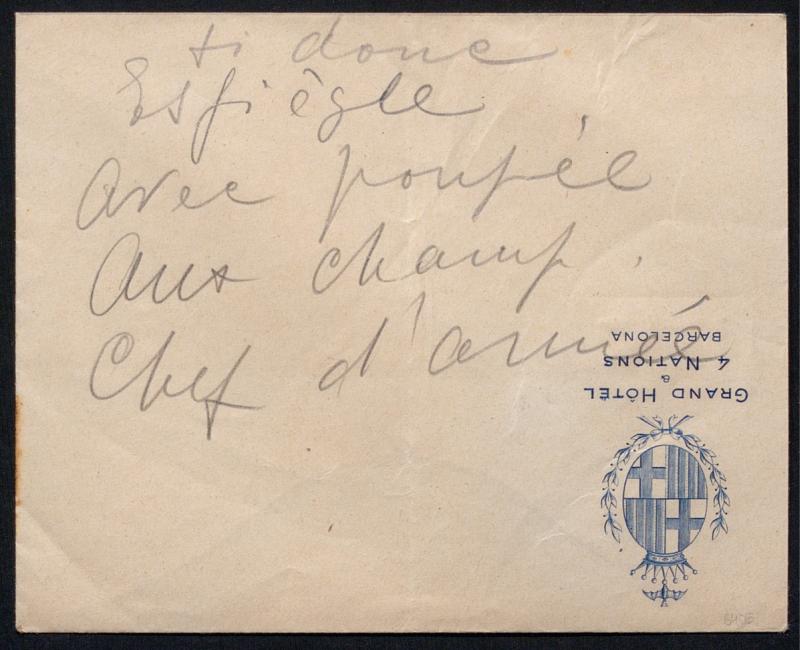 ti donc
Espiègle
avec poupée
aux champ.
Chef d'armée
GRAND HÔTEL
&
4 NATIONS
BARCELONA